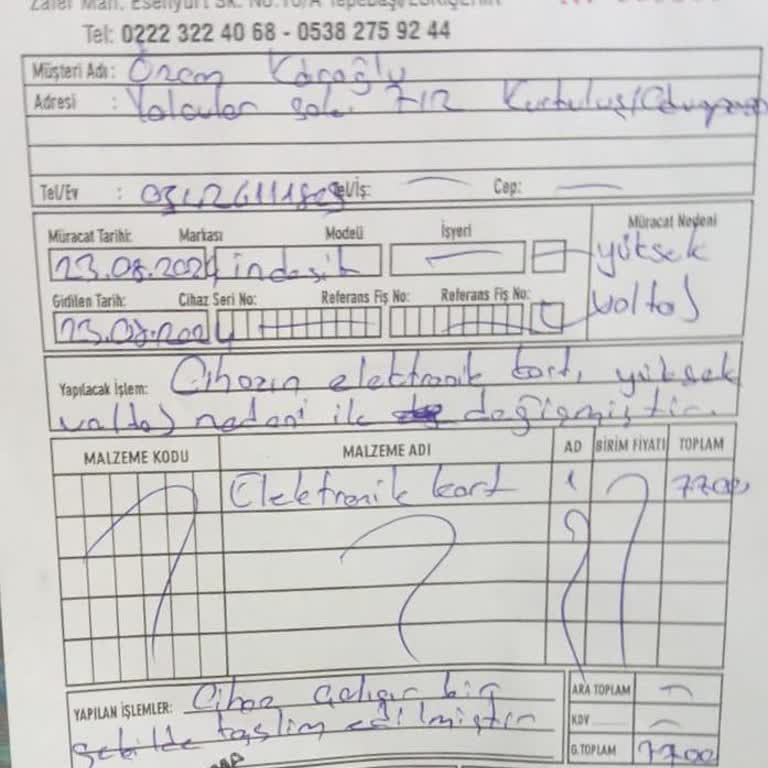 Zafer Mah. Esenyurt Sk. No:10/A Tepebaşı/ESKİŞEHİR
Tel: 0222 322 40 68 - 0538 275 92 44
Müşteri Adı:
Adresi : 7/2 Kurtuluş/
Tel/Ev : Tel/İş: Cep:
Müracat Tarihi: Markası Modeli İşyeri Müracat Nedeni
23.08.2024 indesit yüksek
Gidilen Tarih: Cihaz Seri No: Referans Fiş No: Referans Fiş No: voltaj
23.08.2024
Yapılacak İşlem: Cihazın elektronik kartı yüksek
voltaj nedeni ile değişmiştir.
MALZEME KODU MALZEME ADI AD BİRİM FİYATI TOPLAM
Elektronik kart 1 7700
YAPILAN İŞLEMLER: Cihaz çalışır bir ARA TOPLAM
şekilde teslim edilmiştir KDV
G.TOPLAM 7700